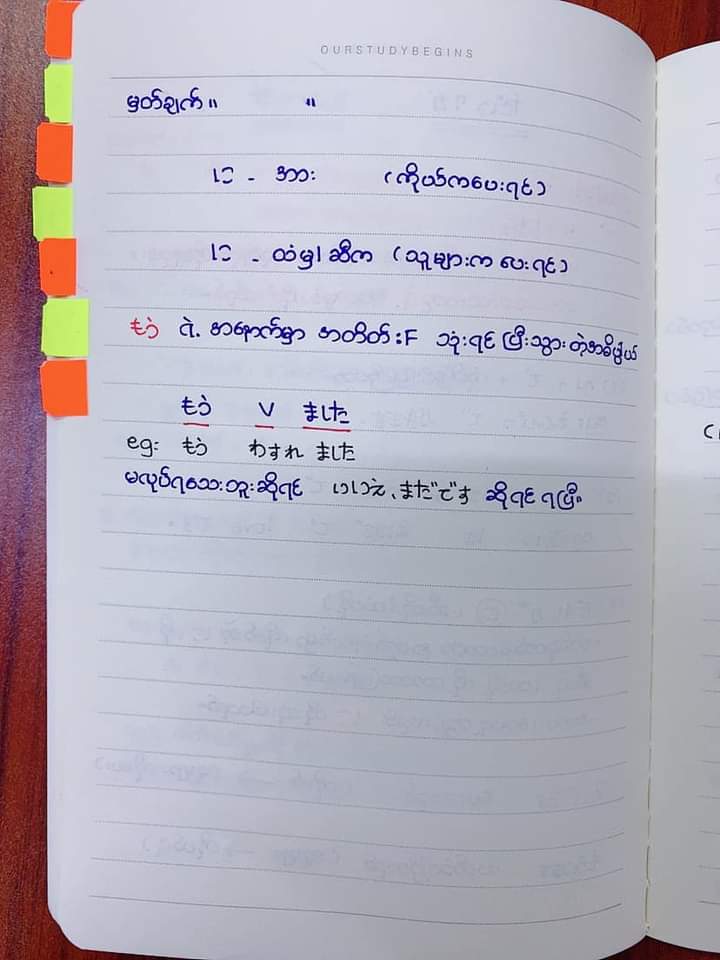 OURSTUDYBEGINS
မှတ်ချက်။ ။
に - အား (ကိုယ်ကပေးရင်)
に - ထံမှ၊ ဆီက (သူများက ပေးရင်)
もう ရဲ့ အနောက်မှာ အတိတ် : F သုံးရင် ပြီးသွားတဲ့အဓိပ္ပါယ်
もう V ました
eg: もう わすれ ました
မလုပ်ရသေးဘူးဆိုရင် いいえ、まだです ဆိုရင် ရပြီ။